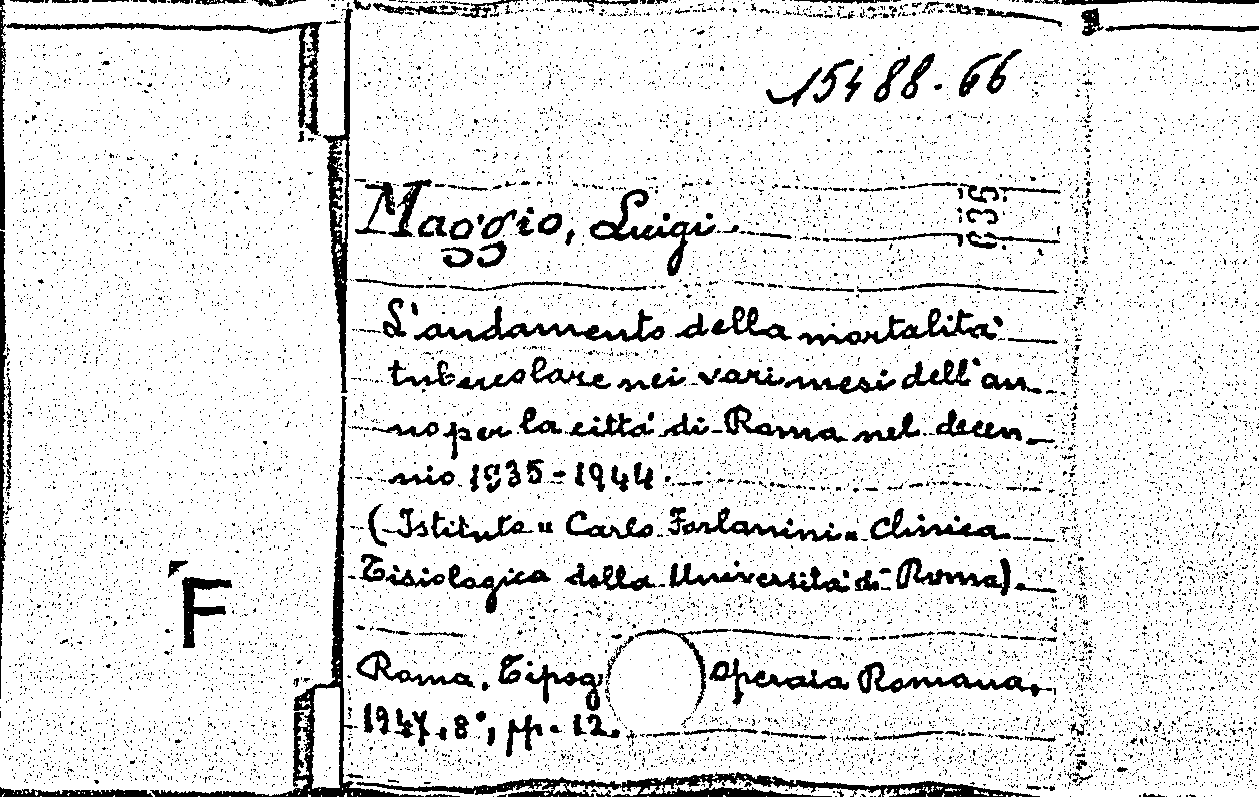 15488.66
Maggio, Luigi.
635
L'andamento della mortalità
tubercolare nei vari mesi dell'an-
no per la città di Roma nel decen-
nio 1935-1944.
(Istituto "Carlo Forlanini" Clinica
Tisiologica della Università di Roma).
F
Roma, Tipog Operaia Romana,
1947, 8°, pp. 12.